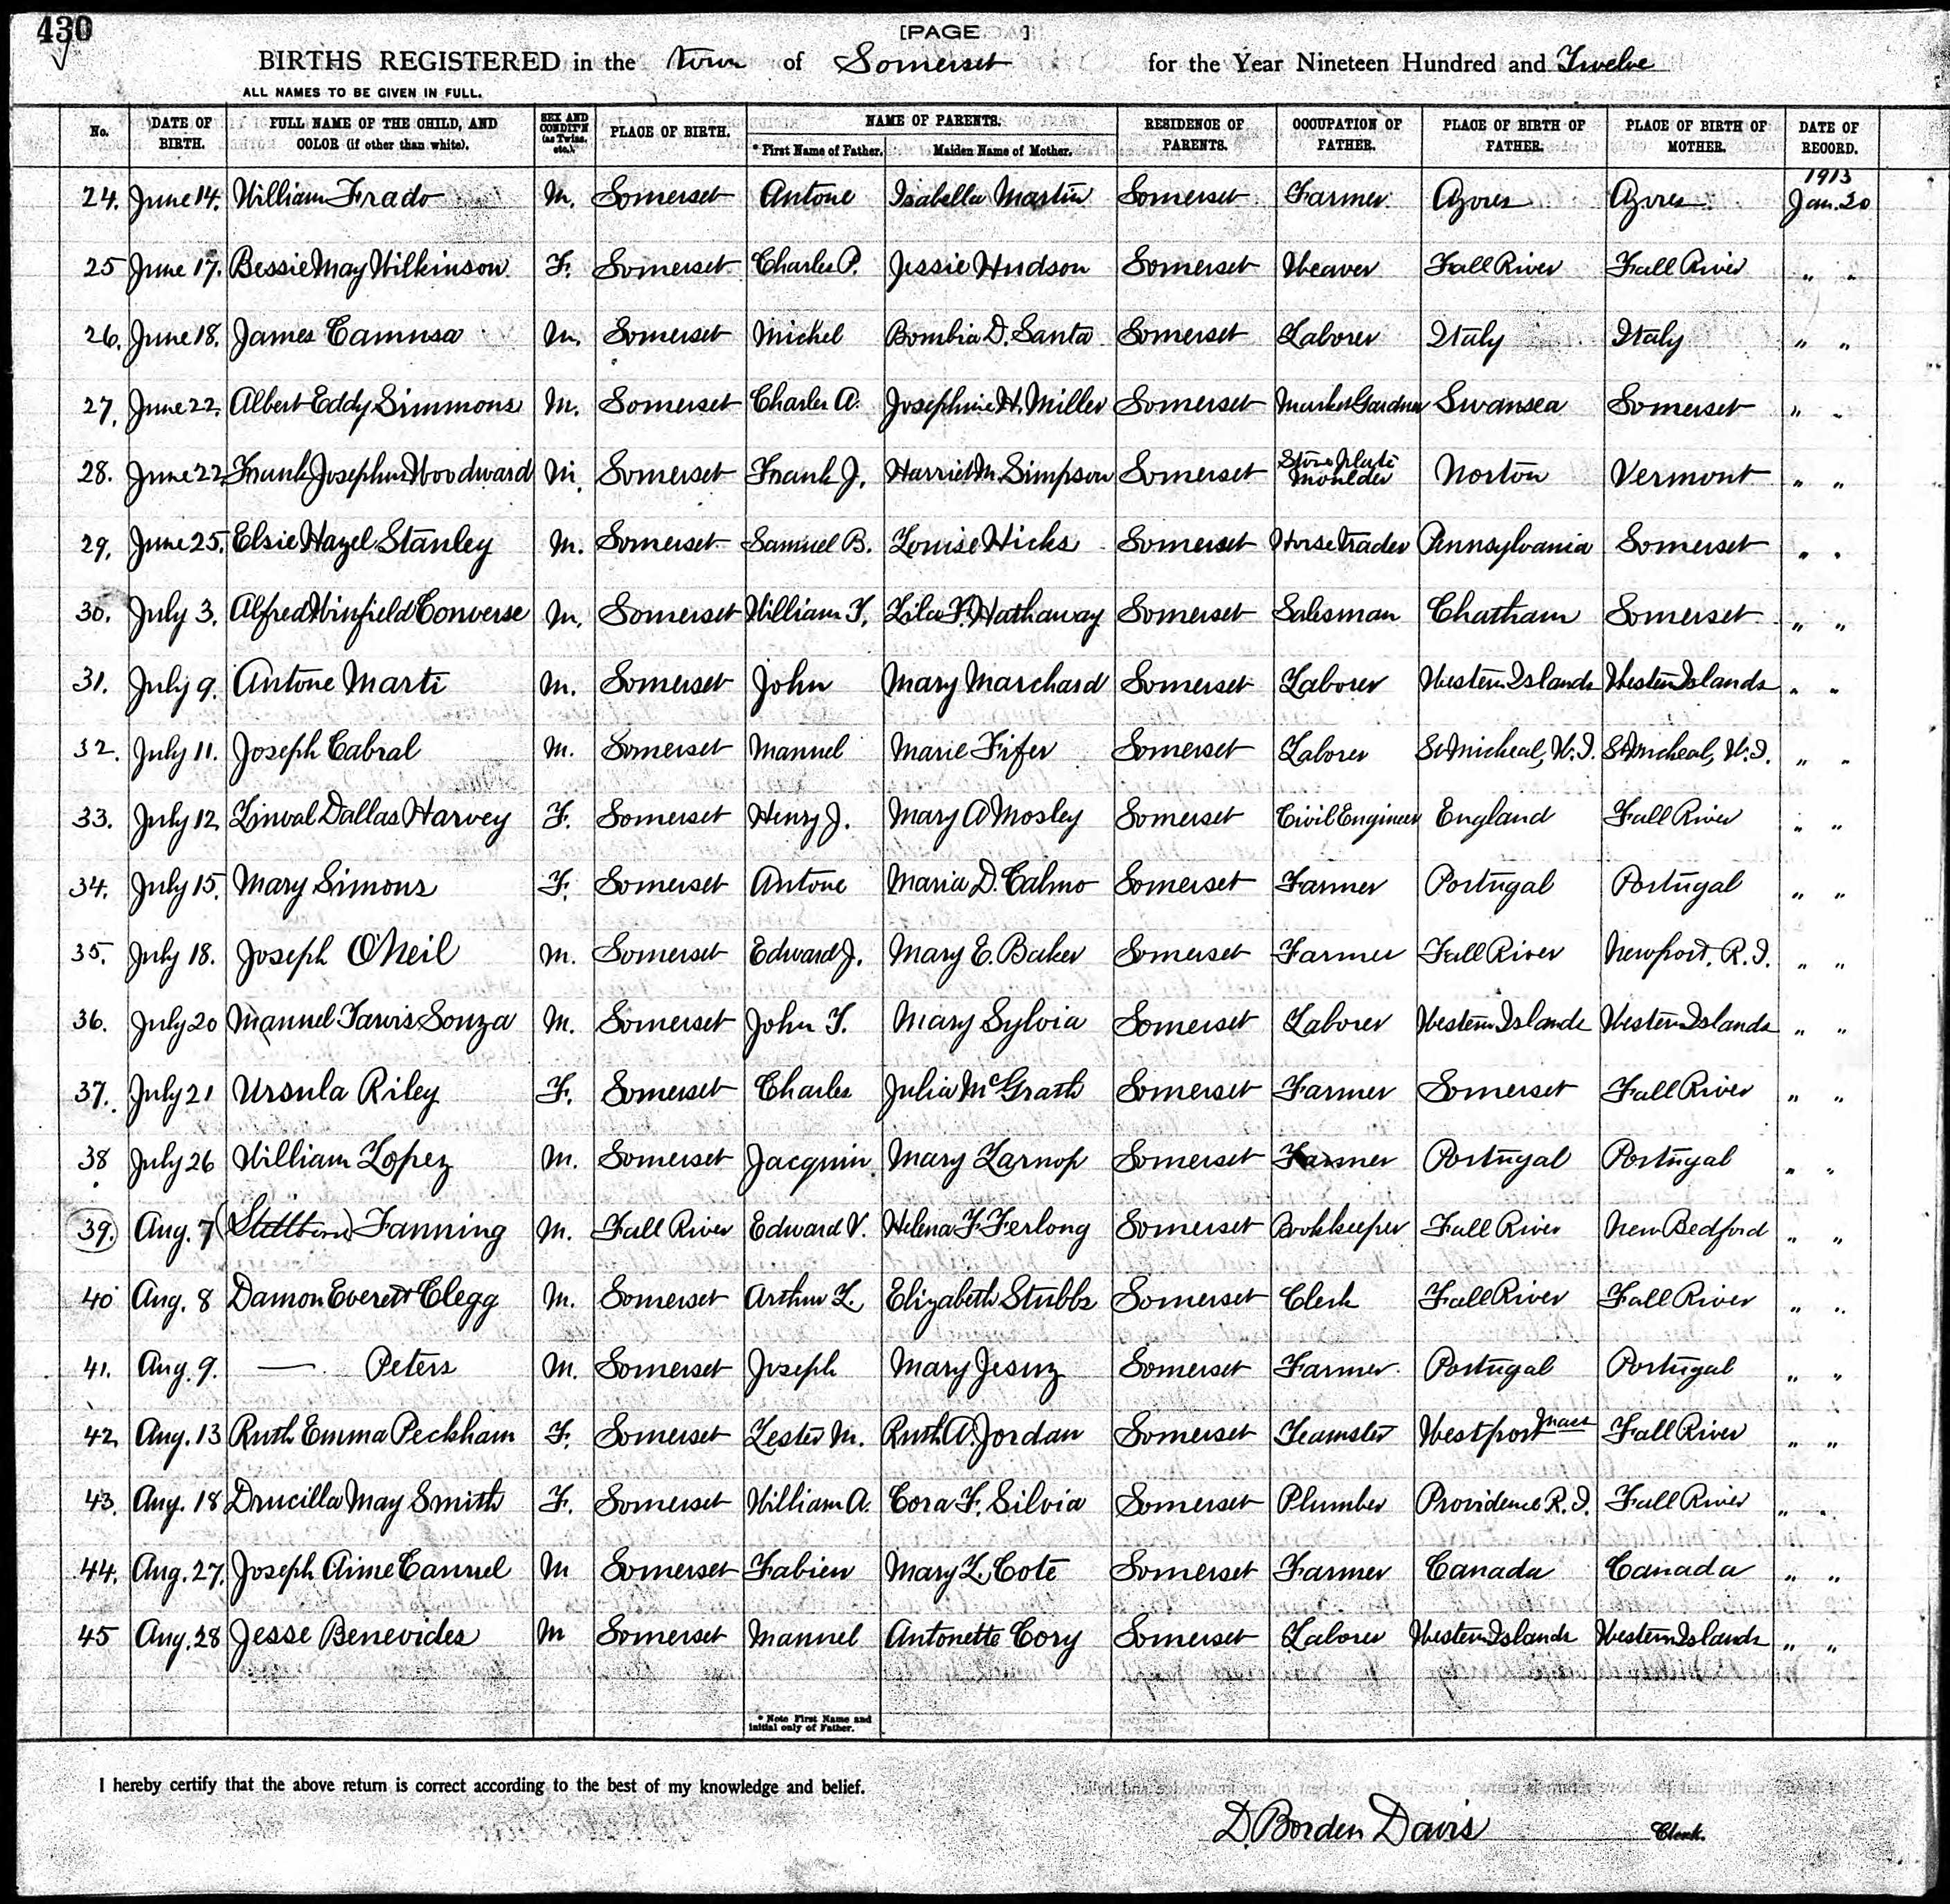 430
[PAGE ]
BIRTHS REGISTERED in the town of Somerset for the Year Nineteen Hundred and Twelve
ALL NAMES TO BE GIVEN IN FULL.
No. DATE OF BIRTH. FULL NAME OF THE CHILD, AND COLOR (if other than white). SEX AND CONDIT'N (as Twins, etc.) PLACE OF BIRTH. NAME OF PARENTS. * First Name of Father. Maiden Name of Mother. RESIDENCE OF PARENTS. OCCUPATION OF FATHER. PLACE OF BIRTH OF FATHER. PLACE OF BIRTH OF MOTHER. DATE OF RECORD.
24. June 14. William Frado M. Somerset Antone Isabella Martin Somerset Farmer Azores Azores 1913 Jan. 20
25 June 17. Bessie May Wilkinson F. Somerset Charles P. Jessie Hudson Somerset Weaver Fall River Fall River " "
26. June 18. James Camusa M. Somerset Michel Bombia D. Santa Somerset Laborer Italy Italy " "
27. June 22. Albert Eddy Simmons M. Somerset Charles A. Josephine H. Miller Somerset Market Gardner Swansea Somerset " "
28. June 22 Frank Josephus Woodward M. Somerset Frank J. Harriet M. Simpson Somerset Stove plate moulder Norton Vermont " "
29. June 25. Elsie Hazel Stanley M. Somerset Samuel B. Louise Hicks Somerset Horse Trader Pennsylvania Somerset " "
30. July 3. Alfred Winfield Converse M. Somerset William F. Lila F. Hathaway Somerset Salesman Chatham Somerset " "
31. July 9. Antone Marti M. Somerset John Mary Marchard Somerset Laborer Western Islands Western Islands " "
32. July 11. Joseph Cabral M. Somerset Manuel Marie Fifer Somerset Laborer St Micheal, W.I. St Micheal, W.I. " "
33. July 12 Linval Dallas Harvey F. Somerset Henry J. Mary A Mosley Somerset Civil Engineer England Fall River " "
34. July 15. Mary Simons F. Somerset Antone Maria D. Calmo Somerset Farmer Portugal Portugal " "
35. July 18. Joseph O'Neil M. Somerset Edward J. Mary E. Baker Somerset Farmer Fall River Newport, R.I. " "
36. July 20 Manuel Tarvis Souza M. Somerset John T. Mary Sylvia Somerset Laborer Western Islands Western Islands " "
37. July 21 Ursula Riley F. Somerset Charles Julia McGrath Somerset Farmer Somerset Fall River " "
38 July 26 William Lopez M. Somerset Jacquin Mary Larnop Somerset Farmer Portugal Portugal " "
39. Aug. 7 (Stillborn) Fanning M. Fall River Edward V. Helena F Ferlong Somerset Bookkeeper Fall River New Bedford " "
40 Aug. 8 Damon Everett Clegg M. Somerset Arthur L. Elizabeth Stubbs Somerset Clerk Fall River Fall River " "
41. Aug. 9. — Peters M. Somerset Joseph Mary Jesuz Somerset Farmer Portugal Portugal " "
42 Aug. 13 Ruth Emma Peckham F. Somerset Lester M. Ruth A. Jordan Somerset Teamster Westport Mass Fall River " "
43. Aug. 18 Drucilla May Smith F. Somerset William A. Cora F. Silvia Somerset Plumber Providence R.I. Fall River " "
44. Aug. 27. Joseph Aime Canuel M Somerset Fabien Mary L. Cote Somerset Farmer Canada Canada " "
45 Aug. 28 Jesse Benevides M Somerset Manuel Antonette Cory Somerset Laborer Western Islands Western Islands " "
* Note First Name and
initial only of Father.
I hereby certify that the above return is correct according to the best of my knowledge and belief.
D. Borden Davis Clerk.